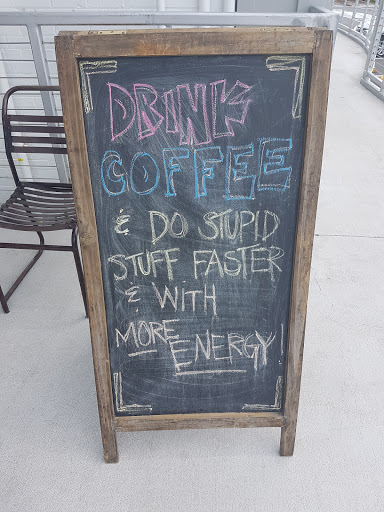 DRINK
COFFEE
& DO STUPID
STUFF FASTER
& WITH
MORE
ENERGY!